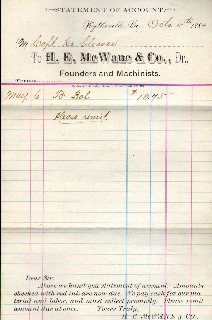 STATEMENT OF ACCOUNT.
Wytheville, Va. Oct. 4th 188
M Capt.
To H. E. McWane & Co., Dr.,
Founders and Machinists.
Terms
May 6 To Bal $ 18.75
Please remit.
Dear Sir:
Above we hand you statement of account. Amounts
checked with red ink are now due. We pay cash for our ma-
terial and labor, and must collect promptly. Please remit
amount due at once. Yours Truly,
H. E. McWANE & CO.